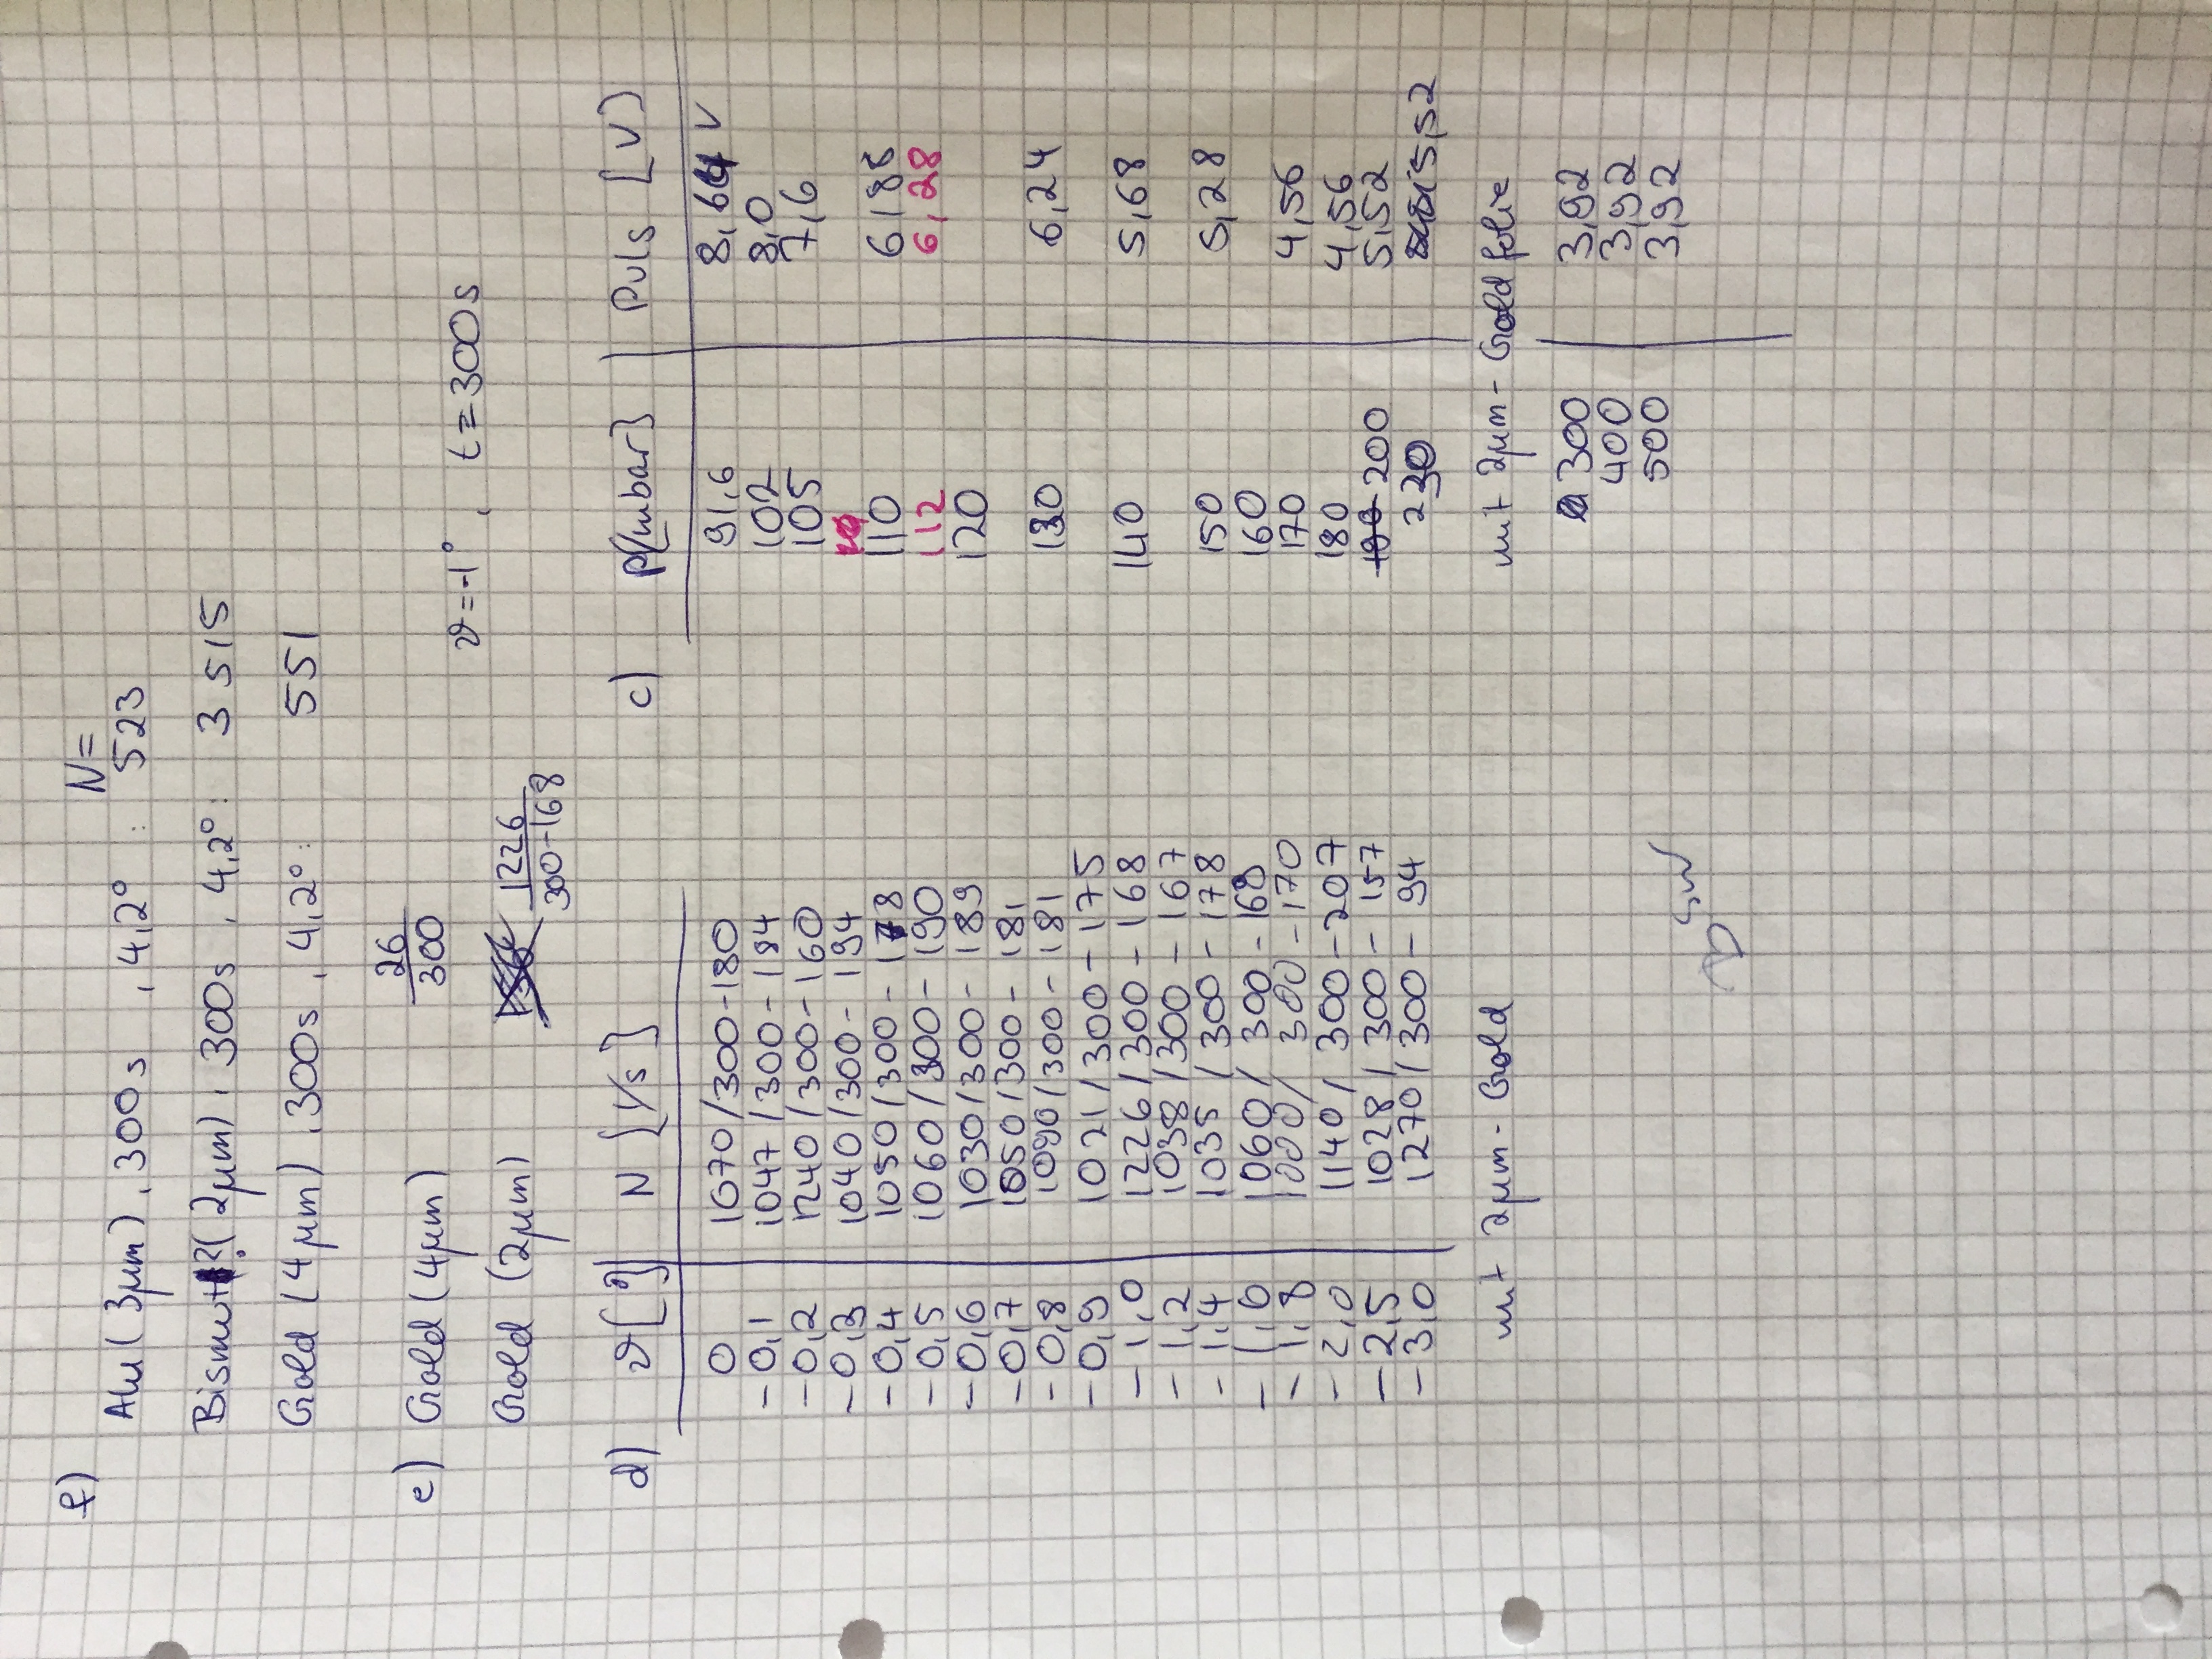 f)
N=
Alu (3µm), 300s, 4,2° : 523
Bismut ? (2µm), 300s, 4,2° : 3515
Gold (4µm), 300s, 4,2° : 551
e) Gold (4µm) 26/300
ϑ=-1°, t=300s
Gold (2µm) 1226/300-168
d) ϑ[°] N [1/s]
0 1070/300-180
-0,1 1047/300-184
-0,2 1240/300-160
-0,3 1040/300-194
-0,4 1050/300-178
-0,5 1060/300-190
-0,6 1030/300-189
-0,7 1050/300-181
-0,8 1090/300-181
-0,9 1021/300-175
-1,0 1226/300-168
-1,2 1038/300-167
-1,4 1035/300-178
-1,6 1060/300-169
-1,8 1000/300-170
-2,0 1140/300-207
-2,5 1028/300-157
-3,0 1270/300-94
mit 2µm-Gold
c) p[mbar] Puls [V]
91,6 8,64 V
102 8,0
105 7,6
110 6,88
112 6,28
120
130 6,24
140 5,68
150 5,28
160
170 4,56
180 4,56
190 200 5,52
230 5,52
mit 2µm-Goldfolie
300 3,92
400 3,92
500 3,92